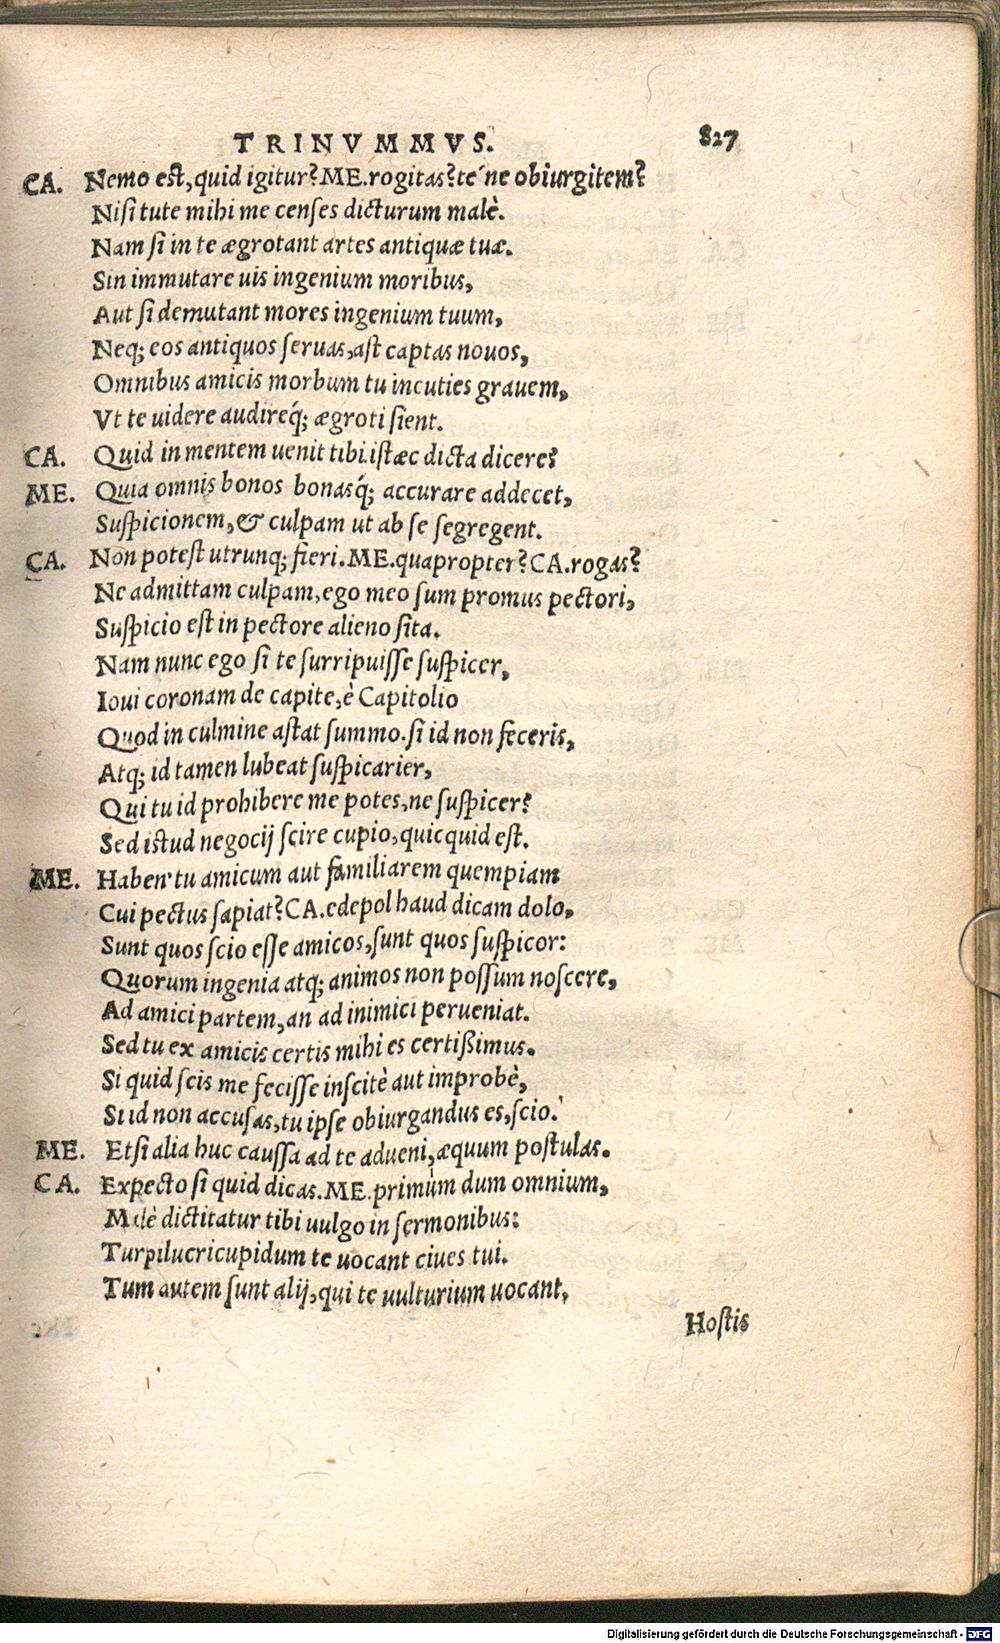 TRINVMMVS. 827
CA. Nemo est, quid igitur? ME. rogitas? te´ne obiurgitem?
Nisi tute mihi me censes dicturum malè.
Nam si in te ægrotant artes antiquæ tuæ.
Sin immutare uis ingenium moribus,
Aut si demutant mores ingenium tuum,
Neq; eos antiquos seruas, ast captas nouos,
Omnibus amicis morbum tu incuties grauem,
Vt te uidere audireq́; ægroti sient.
CA. Quid in mentem uenit tibi istæc dicta dicere?
ME. Quia omnis bonos bonasq́; accurare addecet,
Suspicionem, & culpam ut ab se segregent.
CA. Non potest utrunq; fieri. ME. quapropter? CA. rogas?
Ne admittam culpam, ego meo sum promus pectori,
Suspicio est in pectore alieno sita.
Nam nunc ego si te surripuisse suspicer,
Ioui coronam de capite, è Capitolio
Quod in culmine astat summo. si id non feceris,
Atq; id tamen lubeat suspicarier,
Qui tu id prohibere me potes, ne suspicer?
Sed istud negocij scire cupio, quicquid est.
ME. Haben' tu amicum aut familiarem quempiam
Cui pectus sapiat? CA. edepol haud dicam dolo,
Sunt quos scio esse amicos, sunt quos suspicor:
Quorum ingenia atq; animos non possum noscere,
Ad amici partem, an ad inimici perueniat.
Sed tu ex amicis certis mihi es certißimus.
Si quid scis me fecisse inscitè aut improbè,
Si id non accusas, tu ipse obiurgandus es, scio.
ME. Etsi alia huc caussa ad te adueni, æquum postulas.
CA. Expecto si quid dicas. ME. primùm dum omnium,
Malè dictitatur tibi uulgo in sermonibus:
Turpilucricupidum te uocant ciues tui.
Tum autem sunt alij, qui te uulturium uocant,
Hostis
Digitalisierung gefördert durch die Deutsche Forschungsgemeinschaft - DFG